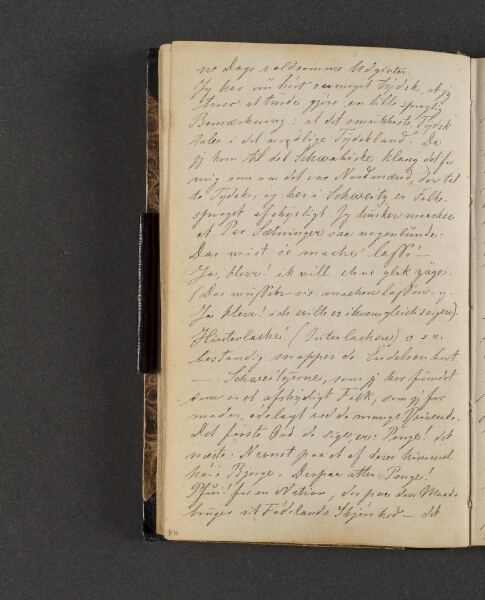 ne Dags voldsomme Udgivter.
Jeg har nu hört saameget Tydsk, at jeg
troer at turde gjöre en lille sproglig
Bemærkning: at det smukkeste Tydsk
tales i det nordlige Tydskland. Da
jeg kom til det Schwabiske klang det for
mig som om det var Nordmænd, der tal
te Tydsk, og her i Schweitz er Folke-
sproget afskyeligt. Jeg husker
et Par Sætninger saa nogenlunde:
Das müst se mache lasse! —
Ja, Herr! ik will ehne glik zäge.
(Das müssen sie machen lassen — og
Ja Herr! ich will es ihnen gleich sagen).
Hinterlache! (Interlachen) o s v.
bestandig snappes de Endelsen bort
— Schweitzerne, som jeg har fundet
dem er et afskyeligt Folk, som jeg for
moder, ødelagt ved de mange Reisende.
Det förste Ord de siger, er: Penge! det
næste: Navnet paa et af deres himmel
höie Bjerge. Derpaa atter: Penge!
Pfui! for en Nation, der paa den Maade
bruger sit Födelands Skjönhed — det
40